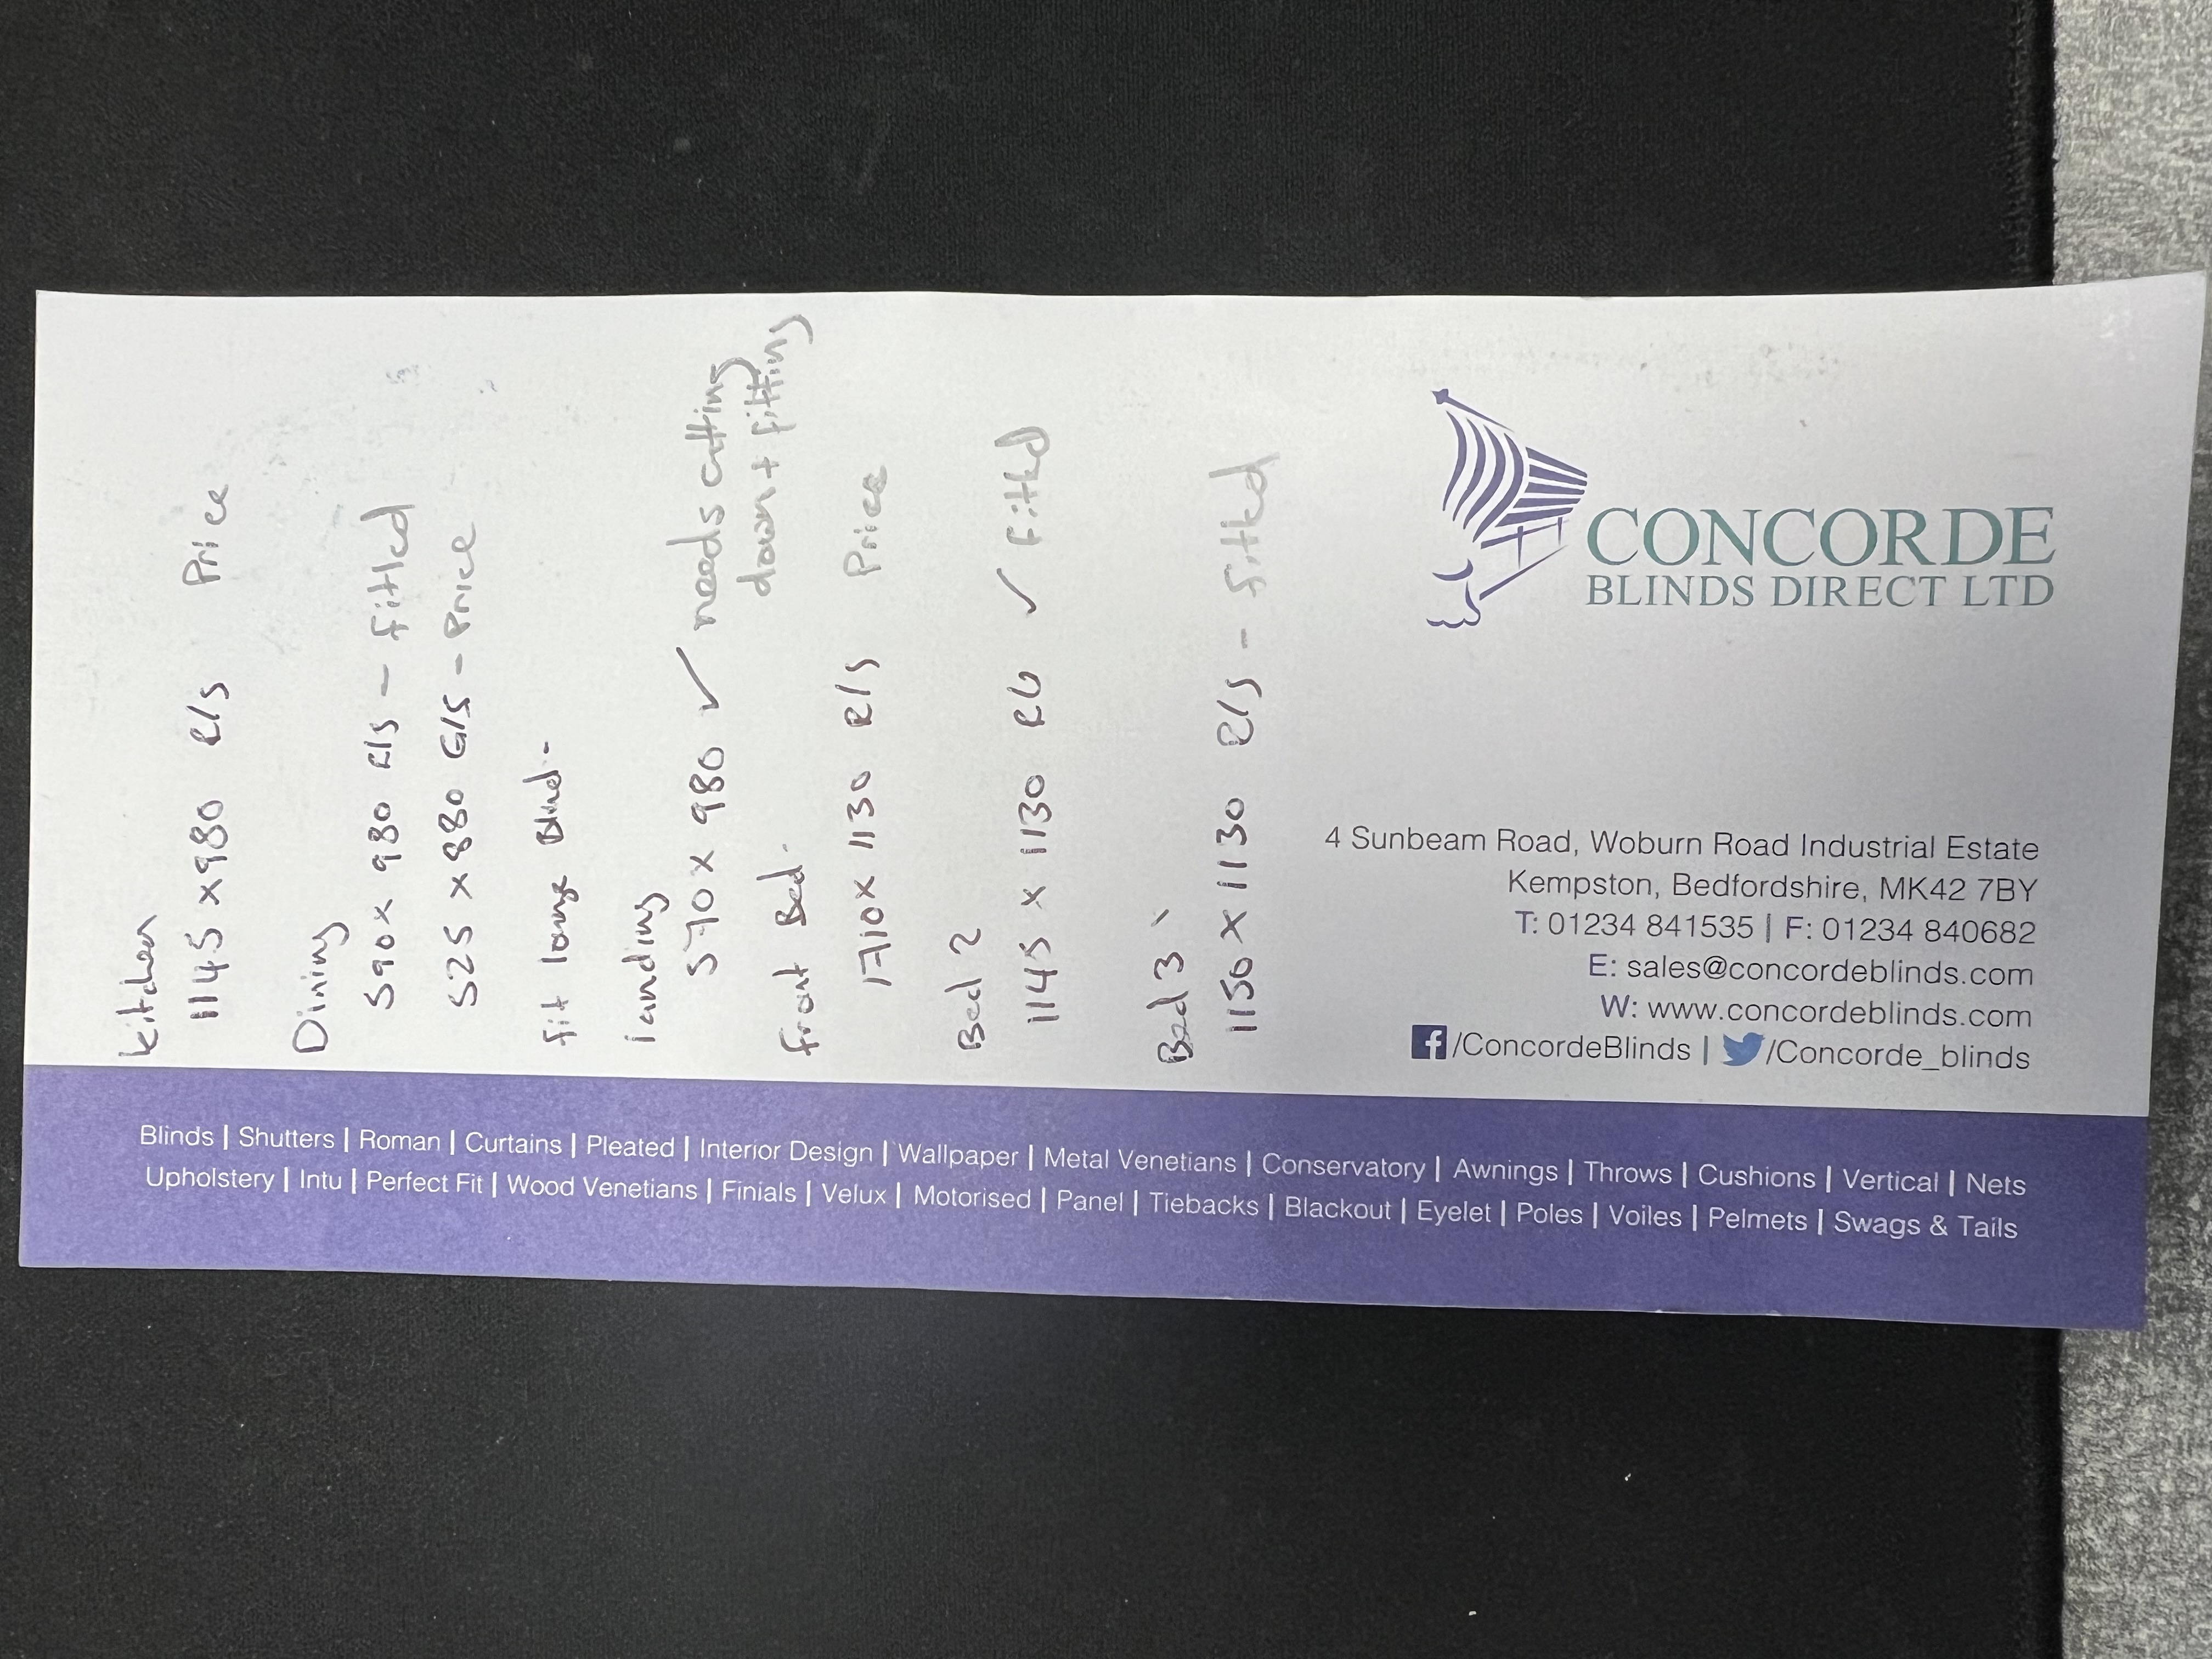 Kitchen
1145 x 980 R/S Price
Dining
590 x 980 R/S - Fitted
525 x 880 G/S - Price
Fit large Blind.
landing
570 x 980 ✓ needs cutting
down + fitting
Front Bed.
1710 x 1130 R/S Price
Bed 2
1145 x 1130 Rb ✓ Fitted
Bed 3
1150 x 1130 R/S - Fitted
CONCORDE
BLINDS DIRECT LTD
4 Sunbeam Road, Woburn Road Industrial Estate
Kempston, Bedfordshire, MK42 7BY
T: 01234 841535 | F: 01234 840682
E: sales@concordeblinds.com
W: www.concordeblinds.com
f/ConcordeBlinds | /Concorde_blinds
Blinds | Shutters | Roman | Curtains | Pleated | Interior Design | Wallpaper | Metal Venetians | Conservatory | Awnings | Throws | Cushions | Vertical | Nets
Upholstery | Intu | Perfect Fit | Wood Venetians | Finials | Velux | Motorised | Panel | Tiebacks | Blackout | Eyelet | Poles | Voiles | Pelmets | Swags & Tails